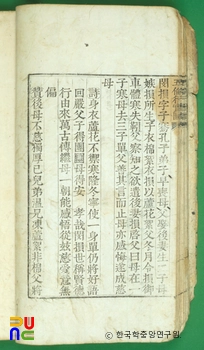 閔損字子騫孔子弟子早喪母父娶後妻生二子母
嫉損所生子衣綿絮衣損以蘆花絮父冬月令損御
車體寒失靷父察知之欲遣後妻損啓父曰母在一
子寒母去三子單父善其言而止母亦感悔遂成慈
母
詩身衣蘆花不禦寒隆冬寧使一身單仍將好語
回嚴父子得團圓母得安 孝哉閔損世稱賢德
行由來萬古傳繼母一朝能感悟從玆慈愛意無
偏
贊後母不慈獨厚己兒弟溫兄凍蘆絮非綿父將
한국학중앙연구원